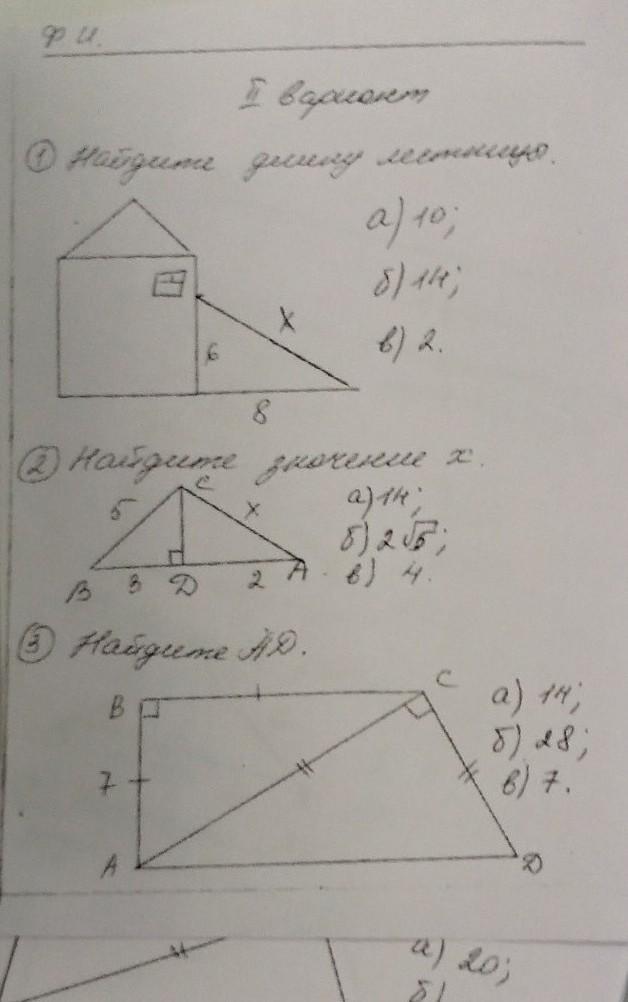 Ф.И.
II вариант
① Найдите длину лестницы.
а) 10;
б) 14;
в) 2.
x
6
8
② Найдите значение x.
C
5
x
а) 14;
б) 2√5;
в) 4.
B 3 D 2 A
③ Найдите AD.
B
C
а) 14;
б) 28;
7
в) 7.
A
D
а) 20;
б)